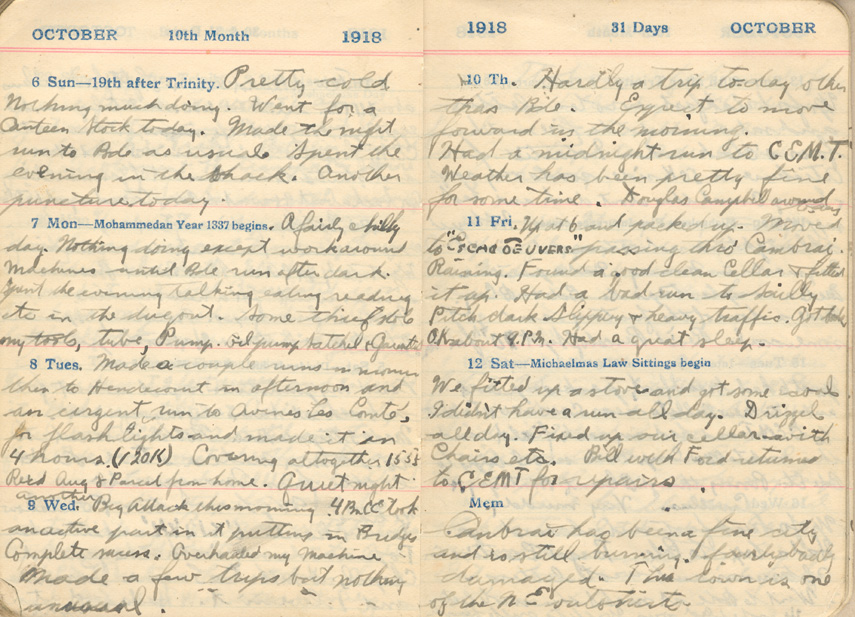 OCTOBER 10th Month 1918
6 Sun—19th after Trinity. Pretty cold
Nothing much doing. Went for a
Canteen Stock today. Made the night
run to Ade as usual. Spent the
evening in the shack. Another
puncture today.
7 Mon—Mohammedan Year 1337 begins. A fairly chilly
day. Nothing doing except work around
Machines until Ade run after dark.
Spent the evening talking eating reading
etc in the dugout. Some thief stole
my tools, tube, Pump. oil pump
8 Tues. Made a couple runs in
then to Hendecourt in afternoon and
an urgent run to Avines Les Conte,
for flash lights and made it in
4 hours. (120K) Covering altogether 155
Rec'd Aug 8 Parcel from home. Quiet night
another
9 Wed. Big Attack this morning 4 Bn CE took
an active part in it putting in Bridges
Complete success. Overhauled my Machine
Made a few trips but nothing
unusual.
1918 31 Days OCTOBER
10 Th. Hardly a trip to-day other
than Bde. Expect to move
forward in the morning.
Had a midnight run to C.E.M.T.
Weather has been pretty fine
for some time. Douglas Campbell around
11 Fri. Up at 6 and packed up. Moved
to "ESCAUDOEUVERS" passing thro Cambrai.
Raining. Found a good clean Cellar & fitted
it up. Had a bad run to Sailly
Pitch dark slippery & heavy traffic. Got back
OK about 9 P.M. Had a great sleep.
12 Sat—Michaelmas Law Sittings begin
We fitted up a stove and got some coal
I didn't have a run all day. Drizzel
all day. Fixed up our cellar with
Chairs etc. Bill with Ford returned
to CEMT for repairs
Mem
Cambrai has been a fine city
and is still burning, fairly badly
damaged. This town is one
of the N.E. outskirts